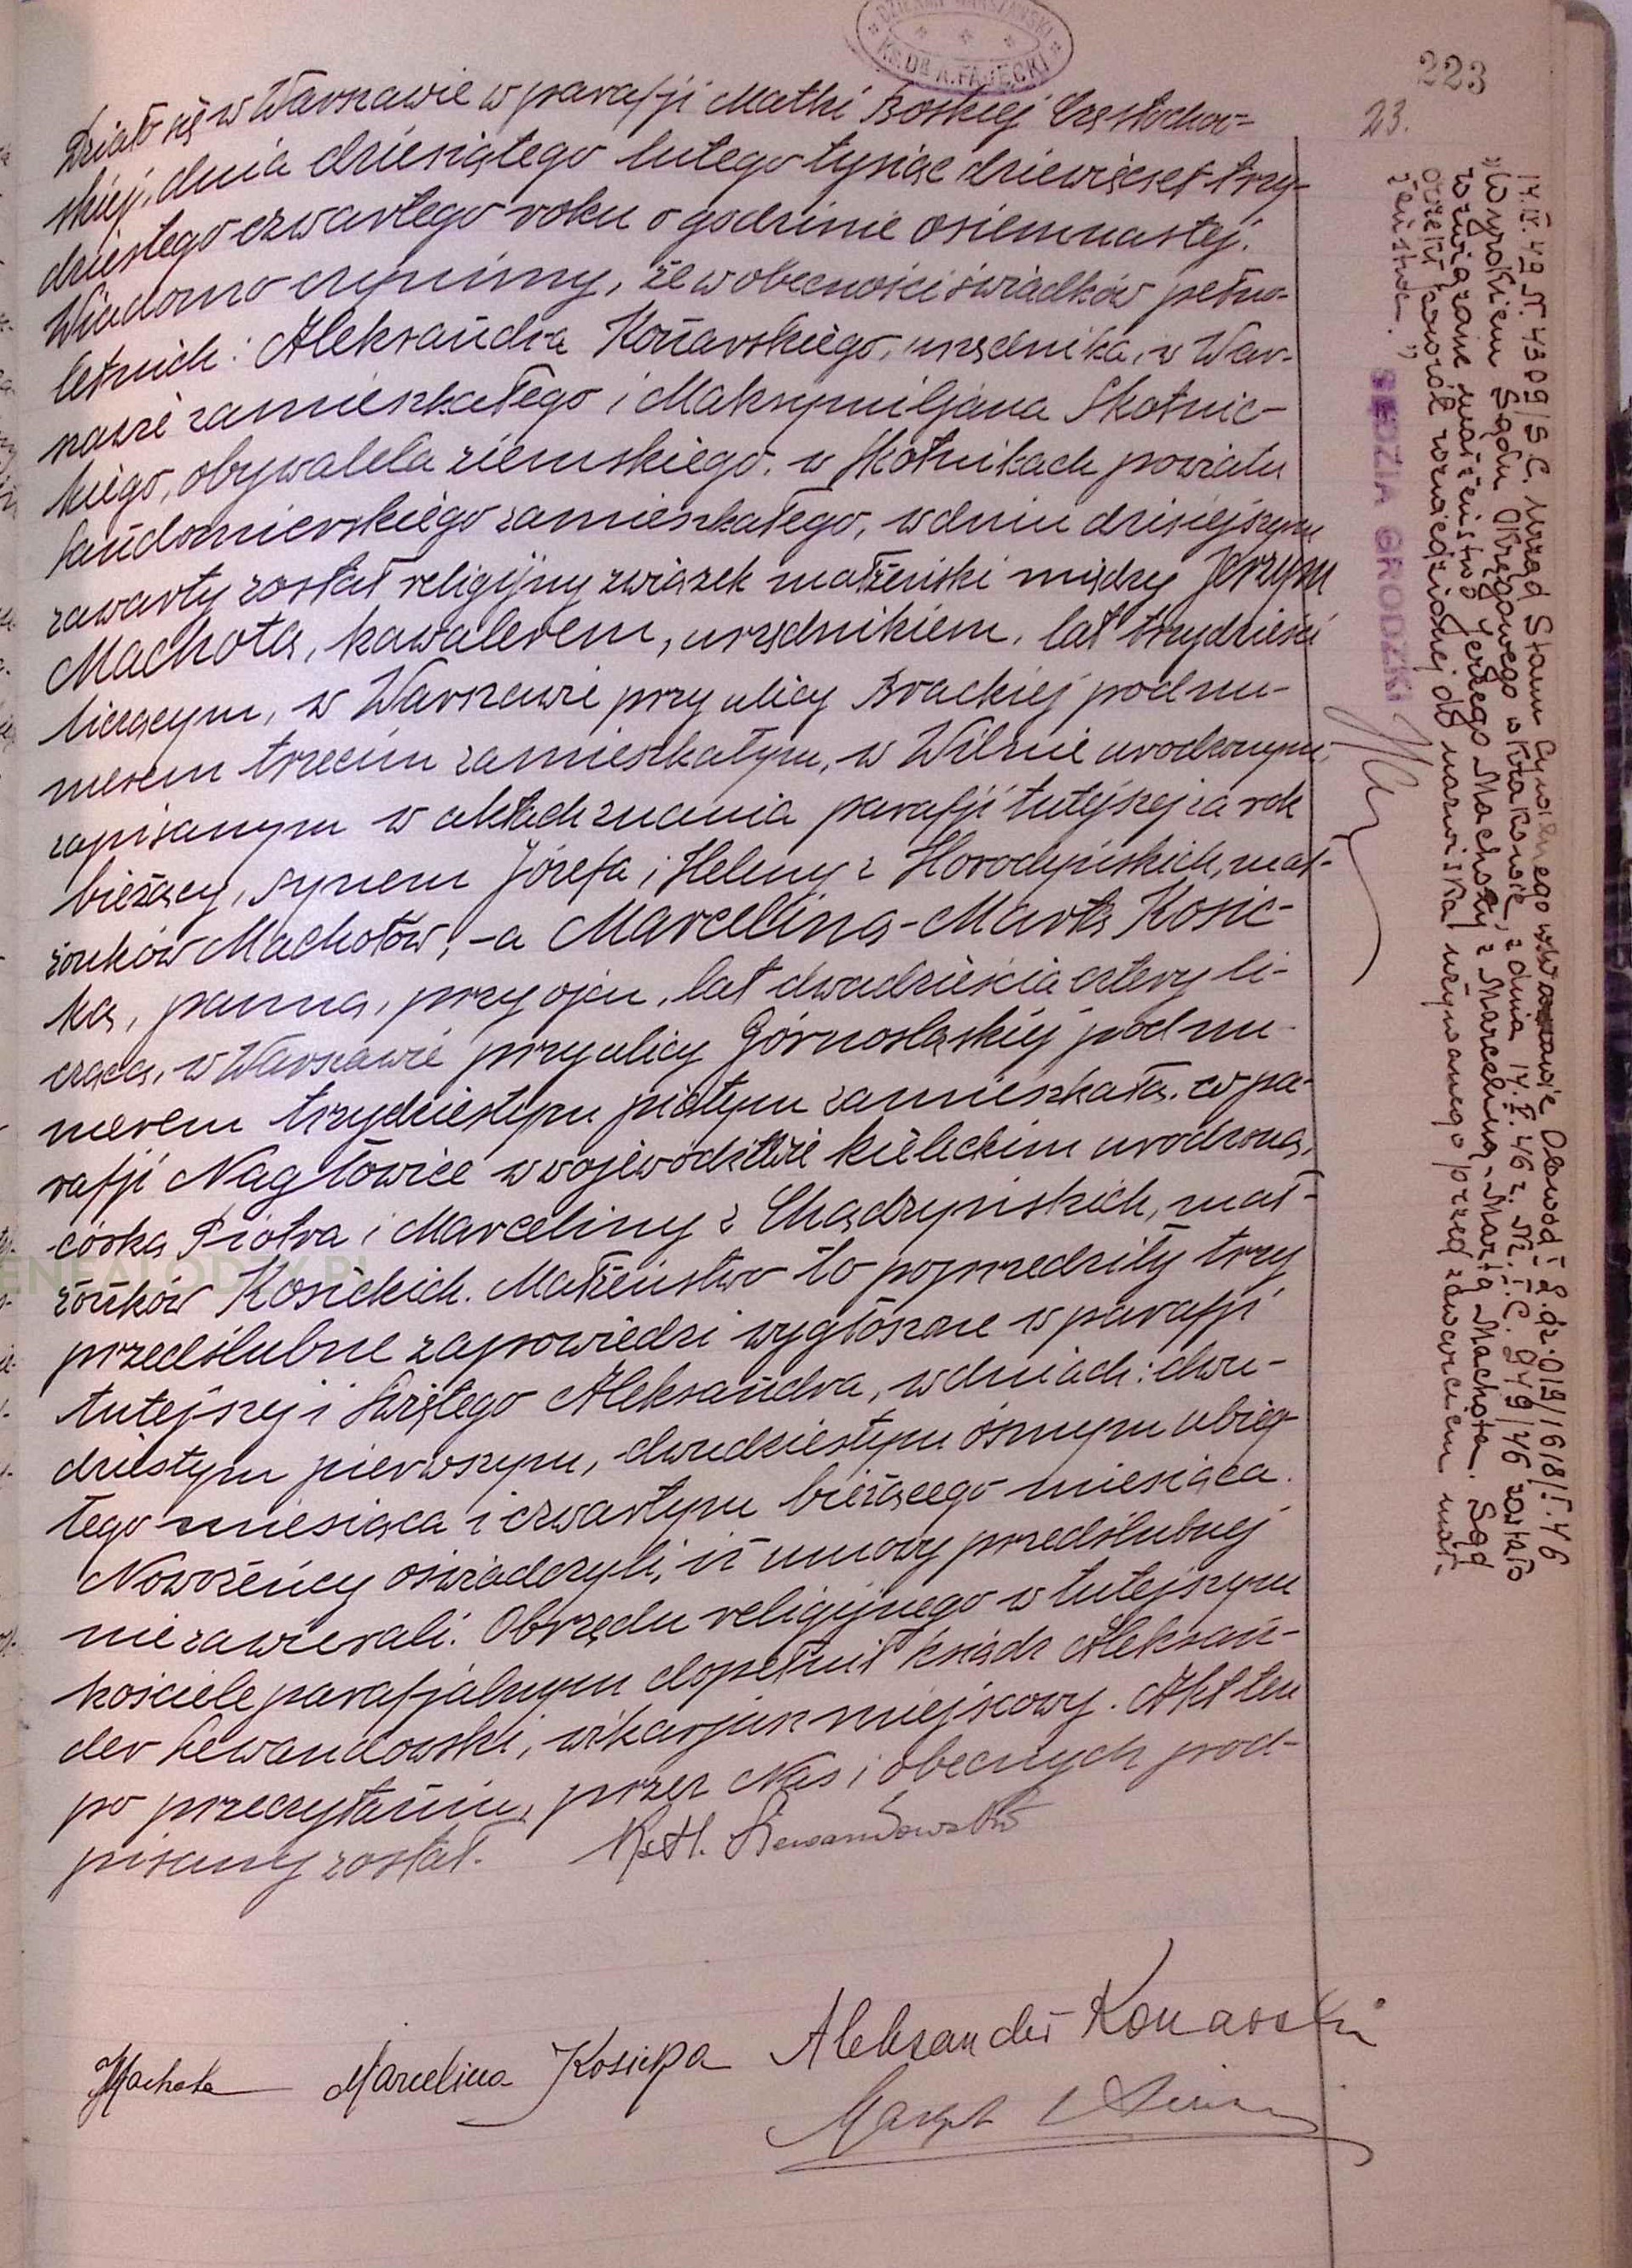 DZIEKAN WARSZAWSKI
KS. DR A. FAJĘCKI
223
23.
Działo się w Warszawie w parafji Matki Boskiej Częstochow-
skiej, dnia dziesiątego lutego tysiąc dziewięćset trzy-
dziestego czwartego roku o godzinie osiemnastej.
Wiadomo czynimy, że w obecności świadków pełno-
letnich: Aleksandra Konarskiego, urzędnika, w War-
szawie zamieszkałego i Maksymiljana Skotnic-
kiego, obywatela ziemskiego, w Skotnikach powiatu
sandomierskiego zamieszkałego, w dniu dzisiejszym
zawarty został religijny związek małżeński między Jerzym
Machotą, kawalerem, urzędnikiem, lat trzydzieści
liczącym, w Warszawie przy ulicy Brackiej pod nu-
merem trzecim zamieszkałym, w Wilnie urodzonym,
zapisanym w aktach znania parafji tutejszej za rok
bieżący, synem Józefa i Heleny z Horodyńskich, mał-
żonków Machotów, -a Marcelliną-Martą Kosic-
ką, panną, przy ojcu, lat dwadzieścia cztery li-
czącą, w Warszawie przy ulicy Górnośląskiej pod nu-
merem trzydziestym piątym zamieszkałą, w pa-
rafji Nagłowice w województwie kieleckim urodzoną,
córką Piotra i Marceliny z Chądzyńskich, mał-
żonków Kosickich. Małżeństwo to poprzedziły trzy
przedślubne zapowiedzi wygłoszone w parafji
tutejszej i Świętego Aleksandra, w dniach: dwu-
dziestym pierwszym, dwudziestym ósmym ubieg-
łego miesiąca i czwartym bieżącego miesiąca.
Nowożeńcy oświadczyli, iż umowy przedślubnej
nie zawierali. Obrzędu religijnego w tutejszym
kościele parafjalnym dopełnił ksiądz Aleksan-
der Lewandowski, wikarjusz miejscowy. Akt ten
po przeczytaniu, przez Nas i obecnych pod-
pisany został. Ks. A. Lewandowski
JMachota Marcelina Kosicka Aleksander Konarski
14.IV.49 N. 4309/S.C. Urząd Stanu Cywilnego w Warszawie Obwód I L.dz. 019/1618/I.46
"Wyrokiem Sądu Okręgowego w Krakowie, z dnia 14.V.46 r. Nr. I.C. 949/46 zostało
rozwiązane małżeństwo Jerzego Machoty z Marceliną-Martą Machotą. Sąd
orzekł powrót rozwiedzionej do nazwiska używanego przed zawarciem mał-
żeństwa."
SĘDZIA GRODZKI